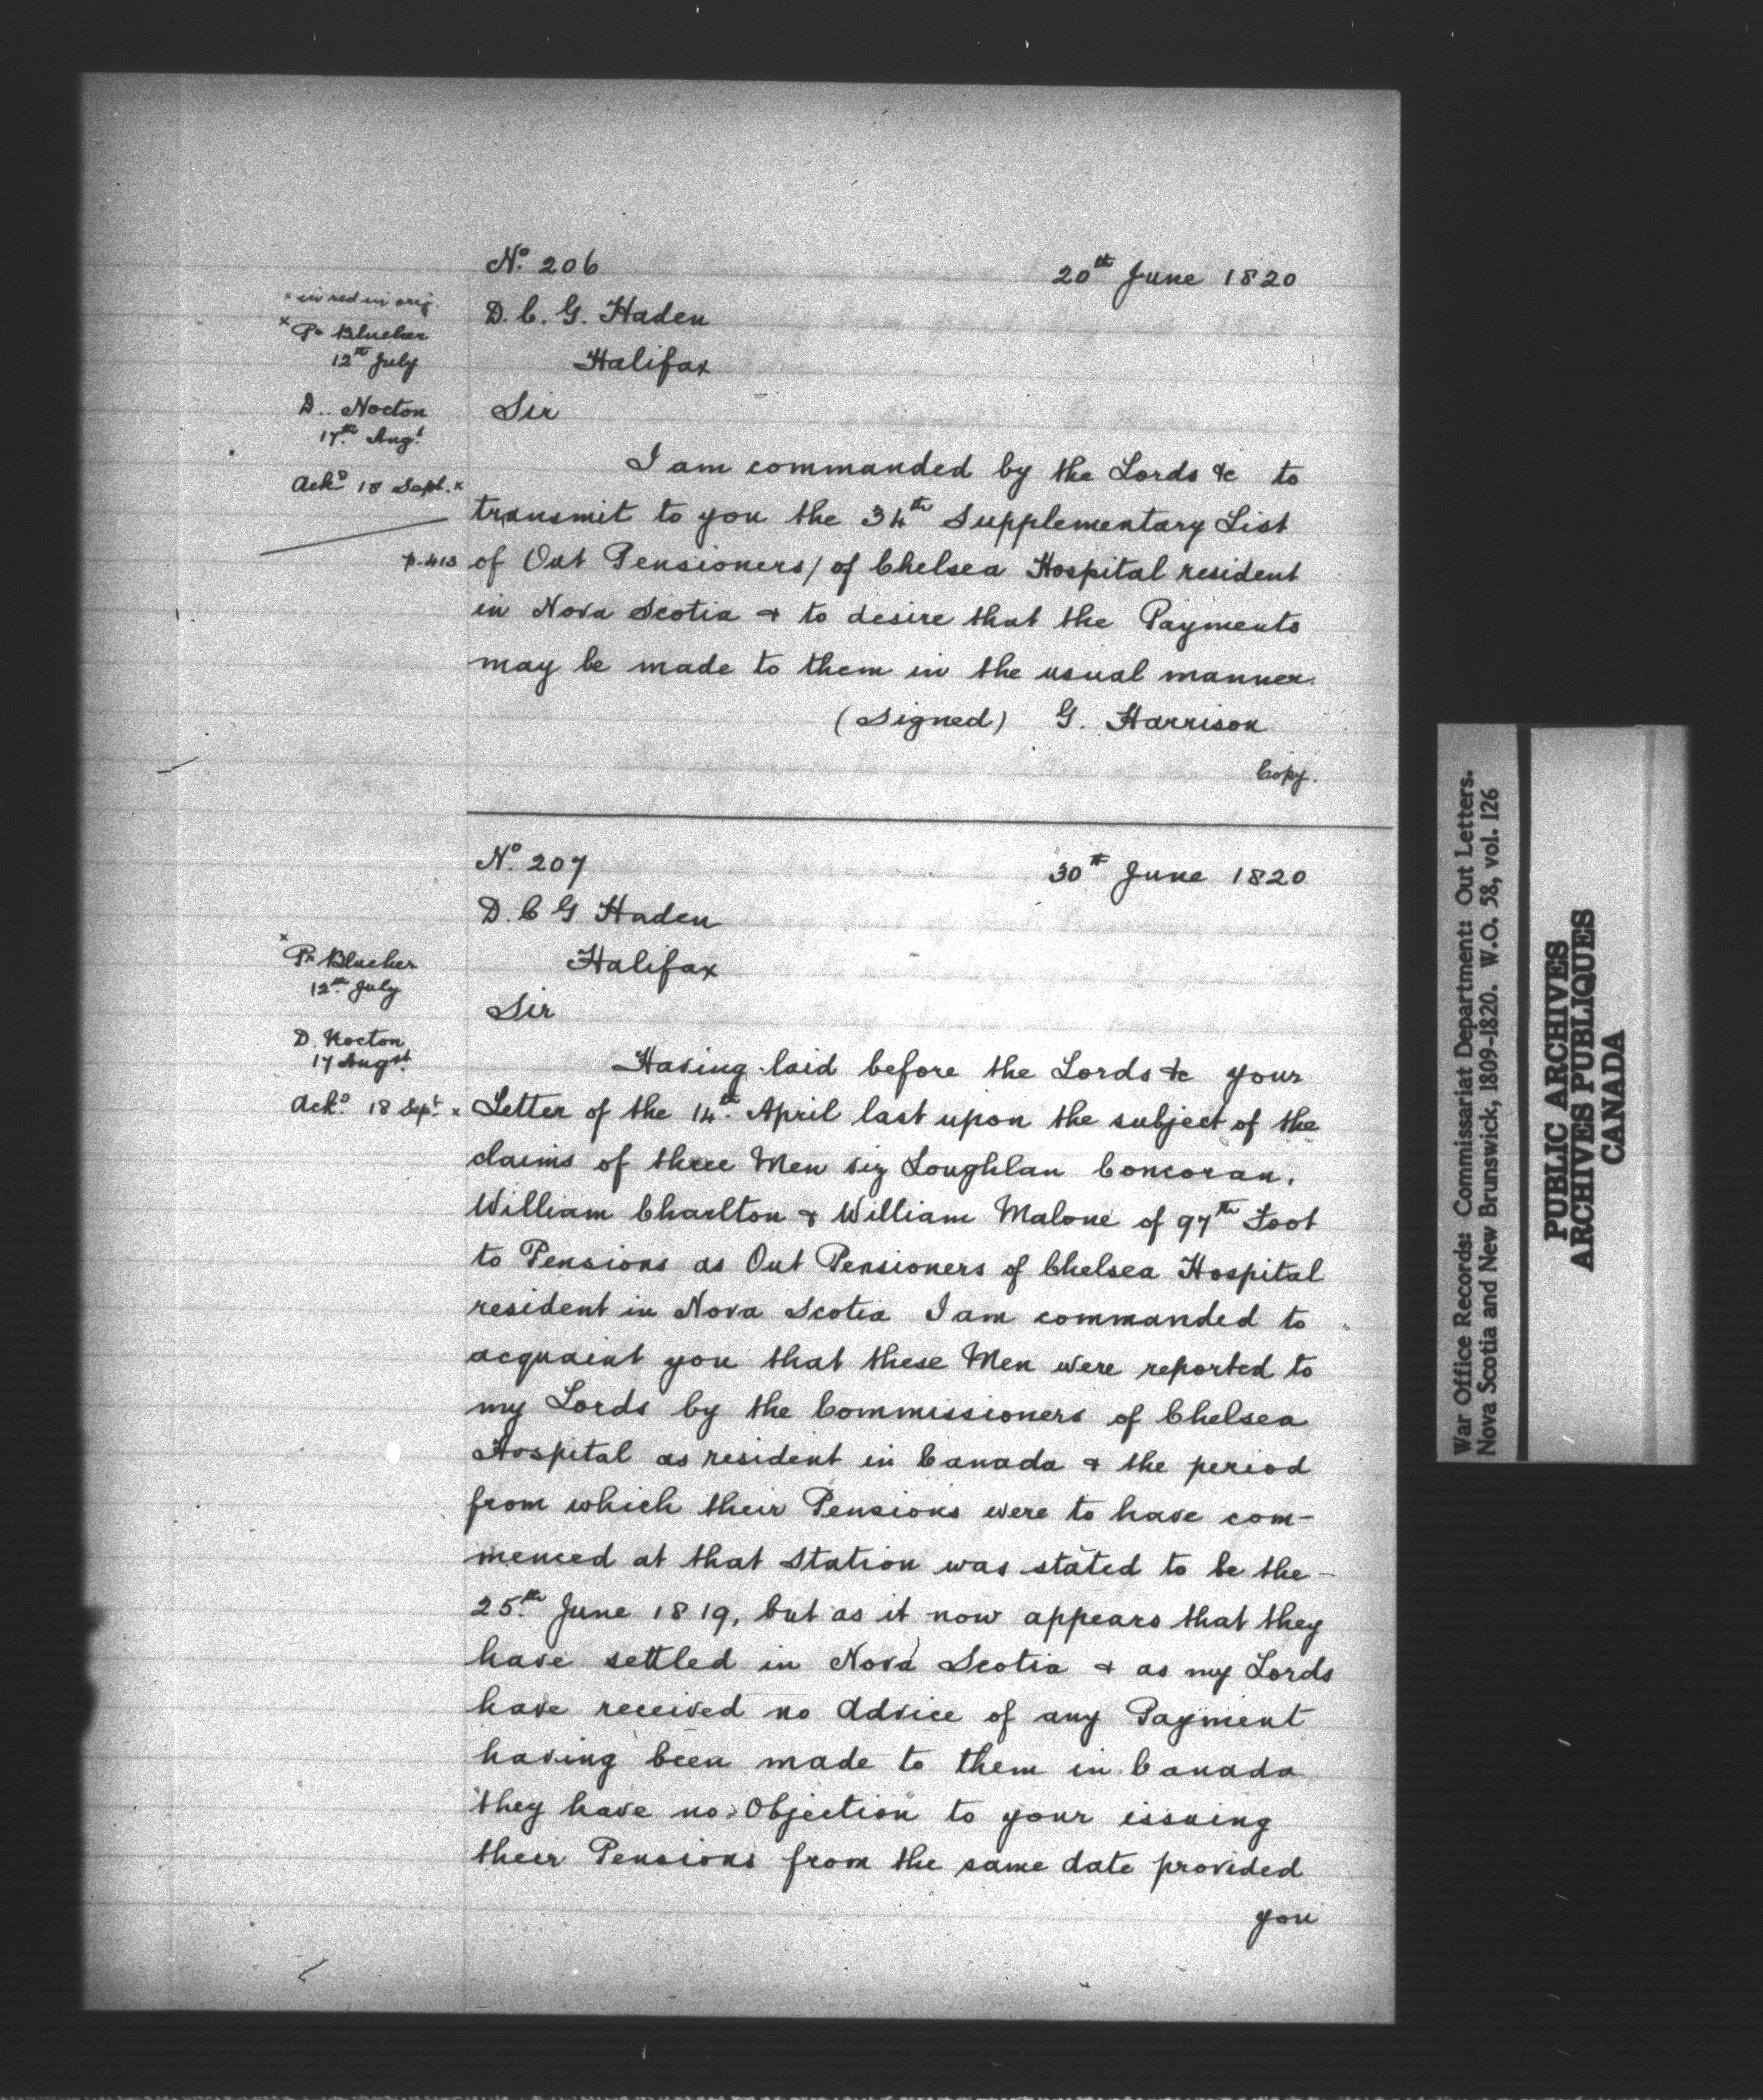 No. 206
20th June 1820
x in red in orig.
D. C. G. Haden
x Pr Blucher
12th July
Halifax
D.. Nocton
17th Augt
Sir
I am commanded by the Lords &c to
Ackd 18 Sept. x
transmit to you the 34th Supplementary List
p. 413
of Out Pensioners / of Chelsea Hospital resident
in Nova Scotia & to desire that the Payments
may be made to them in the usual manner.
(Signed) G. Harrison
Copy.
No. 207
30th June 1820
D. C G Haden
x Pr Blucher
12th July
Halifax
Sir
D. Nocton
17 Augst
Having laid before the Lords &c your
Ackd 18 Sept. x
Letter of the 14th April last upon the subject of the
claims of three Men viz Loughlan Concoran,
William Charlton & William Malone of 97th Foot
to Pensions as Out Pensioners of Chelsea Hospital
resident in Nova Scotia I am commanded to
acquaint you that these Men were reported to
my Lords by the Commissioners of Chelsea
Hospital as resident in Canada & the period
from which their Pensions were to have com-
menced at that Station was stated to be the -
25th June 1819, but as it now appears that they
have settled in Nova Scotia & as my Lords
have received no Advice of any Payment
having been made to them in Canada
they have no Objection to your issuing
their Pensions from the same date provided
you
War Office Records: Commissariat Department: Out Letters.
Nova Scotia and New Brunswick, 1809-1820. W.O. 58, vol. 126
PUBLIC ARCHIVES
ARCHIVES PUBLIQUES
CANADA